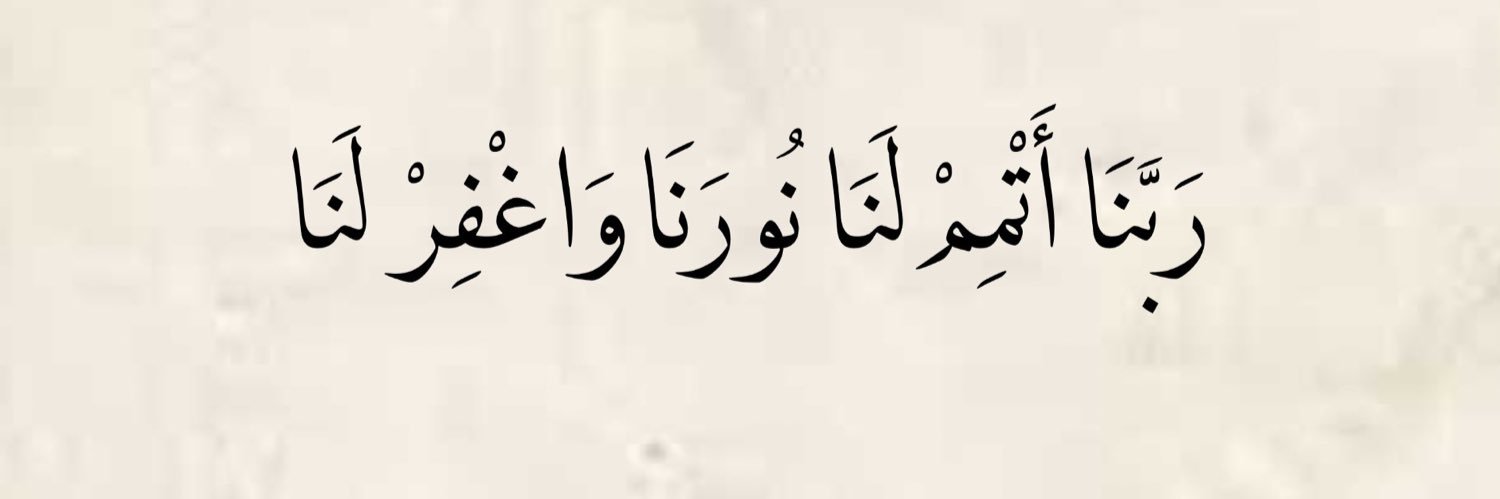 رَبَّنَا أَتْمِمْ لَنَا نُورَنَا وَاغْفِرْ لَنَا